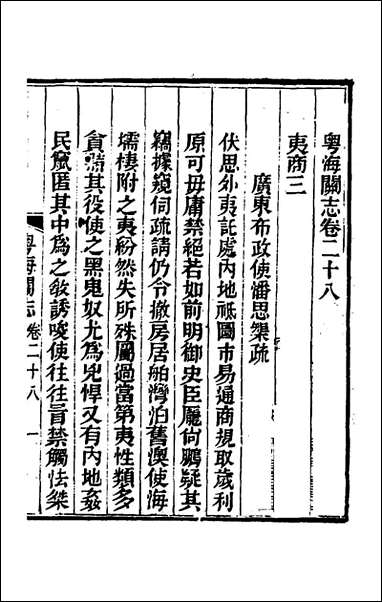 粵海關志卷二十八
夷商三
廣東布政使潘思榘疏
伏思外夷託處內地祗圖市易通商規取歲利
原可毋庸禁絕若如前明御史臣龐尙鵬疑其
竊據窺伺疏請仍令撤房居舶灣泊舊澳使海
壖棲附之夷紛然失所殊屬過當第夷性類多
貪黠其役使之黑鬼奴尤為兇悍又有內地姦
民竄匿其中為之敎誘唆使往往冒禁觸法桀
粵海關志 卷二十八 一